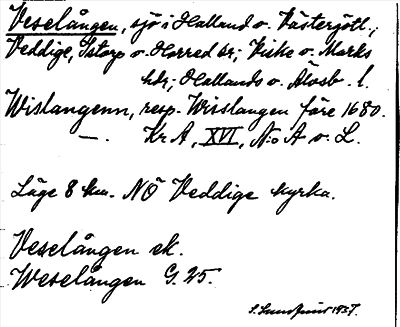 Veselången, sjö i Halland o. Västergötl.;
Veddige, Istorp o. Horred sn; Viske o. Marks
hdr; Hallands o. Älvsb. l.
Wislangenn, resp. Wisslangen före 1680.
—. Kr A, XVI, N:o A o. L.
Läge 8 km. NÖ Veddige kyrka.
Veselången ek.
Weselången G. 25.
S. Lundqvist 1937.